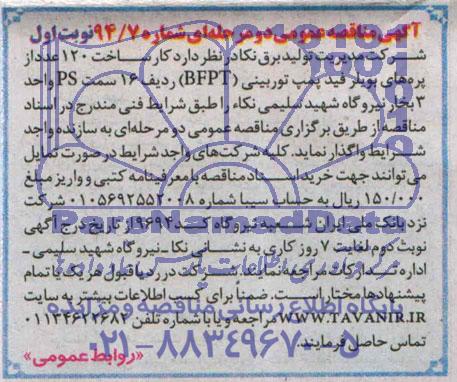 آگهی مناقصه عمومی دو مرحله‌ای شماره ۹۴/۷ نوبت اول
شرکت مدیریت تولید برق نکا در نظر دارد کار ساخت ۱۲۰ عدد از
پره‌های بویلر فید پمپ توربینی (BFPT) ردیف ۱۶ سمت PS واحد
۳ بخار نیروگاه شهید سلیمی نکاء را طبق شرایط فنی مندرج در اسناد
مناقصه از طریق برگزاری مناقصه عمومی دو مرحله‌ای به سازنده واجد
شرایط واگذار نماید. کلیه شرکت‌های واجد شرایط در صورت تمایل
می‌توانند جهت خرید اسناد مناقصه با معرفینامه کتبی و واریز مبلغ
۱۵۰/۰۰۰ ریال به حساب سیبا شماره ۰۱۰۵۶۹۲۵۵۲۰۰۸ شرکت
نزد بانک ملی ایران شعبه نیروگاه کد ۹۶۹۴ از تاریخ درج آگهی
نوبت دوم لغایت ۷ روز کاری به نشانی نکا-نیروگاه شهید سلیمی-
اداره تدارکات مراجعه نمایند. شرکت در رد یا قبول هر یک یا تمام
پیشنهادها مختار است. ضمناً برای دریافت اطلاعات بیشتر به سایت
WWW.TAVANIR.IR مراجعه و یا با شماره تلفن ۰۱۱۳۴۶۲۲۶۸۲
تماس حاصل فرمایند.
«روابط عمومی»
ParsNamadData
پایگاه اطلاع رسانی مناقصه و مزایده
۰۲۱-۸۸۳۴۹۶۷۰-۵